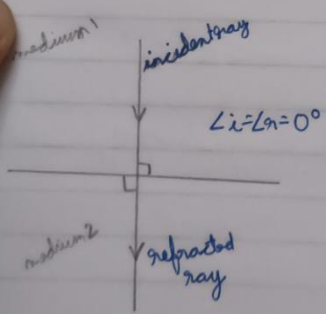 medium 1
incident ray
∠i=∠r=0°
medium 2
refracted
ray